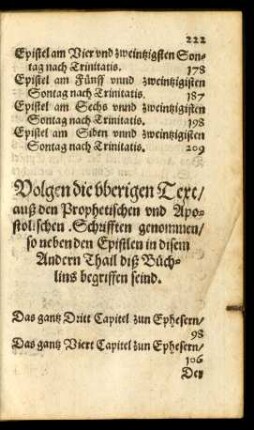 222
Epistel am Vier vnd zweintzigsten Son-
tag nach Trinitatis. 178
Epistel am Fünff vnnd zweintzigisten
Sontag nach Trinitatis. 187
Epistel am Sechs vnnd zweintzigisten
Sontag nach Trinitatis. 198
Epistel am Siben vnnd zweintzigisten
Sontag nach Trinitatis. 209
Volgen die vberigen Text/
auß den Prophetischen vnd Apo-
stolischen Schrifften genommen/
so neben den Epistlen in disem
Andern Thail diß Büch-
lins begriffen seind.
Das gantz Dritt Capitel zun Ephesern/
98
Das gantz Viert Capitel zun Ephesern/
106
Der